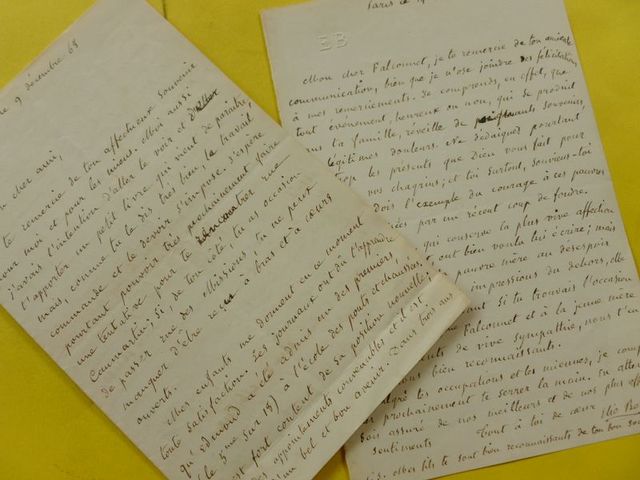 9 décembre 68
cher ami,
te remercie de ton affectueux souvenir
pour moi et pour les miens. Moi aussi
j'avais l'intention d'aller te voir et
t'apporter un petit livre qui vient de paraitre,
mais, comme tu le dis très bien, le travail
commande et le devoir s'impose. J'espère
pourtant pouvoir très prochainement faire
une tentative pour te rencontrer rue
Caumartin; Si, de ton côté, tu as occasion
de passer rue des Missions, tu ne peux
manquer d'être reçu à bras et à cœurs
ouverts.
Mes enfants me donnent en ce moment
toute satisfaction. Les journaux ont dû t'apprendre
qu'Edmond a été admis un des premiers
(le 5me sur 18) à l'école des ponts et chaussées
est fort content de sa position nouvelle;
appointements convenables et il est
bel et bon avenir. Dans trois ans
Paris ce
EB
Mon cher Falconnet, je te remercie de ton amicale
communication, bien que je n'ose joindre des félicitations
à mes remerciements. Je comprends, en effet, que
tout événement, heureux ou non, qui se produit
dans ta famille, réveille de poignants souvenirs,
légitimes douleurs. Ne dédaignez pourtant
trop les présents que Dieu vous fait pour
vos chagrins; et toi surtout, souviens-toi
dois l'exemple du courage à ces pauvres
par un récent coup de foudre.
qui conserve la plus vive affection
ont bien voulu lui écrire; mais
pauvre mère au désespoir
impressions du dehors, elle
Si tu trouvais l'occasion
Falconnet et à la jeune mère
de vive sympathie, nous t'en
bien reconnaissants.
malgré tes occupations et les miennes, je compte
prochainement te serrer la main. En attendant
sois assuré de nos meilleurs et de nos plus
sentiments
tout à toi de cœur
Mes fils te sont bien reconnaissants de ton bon